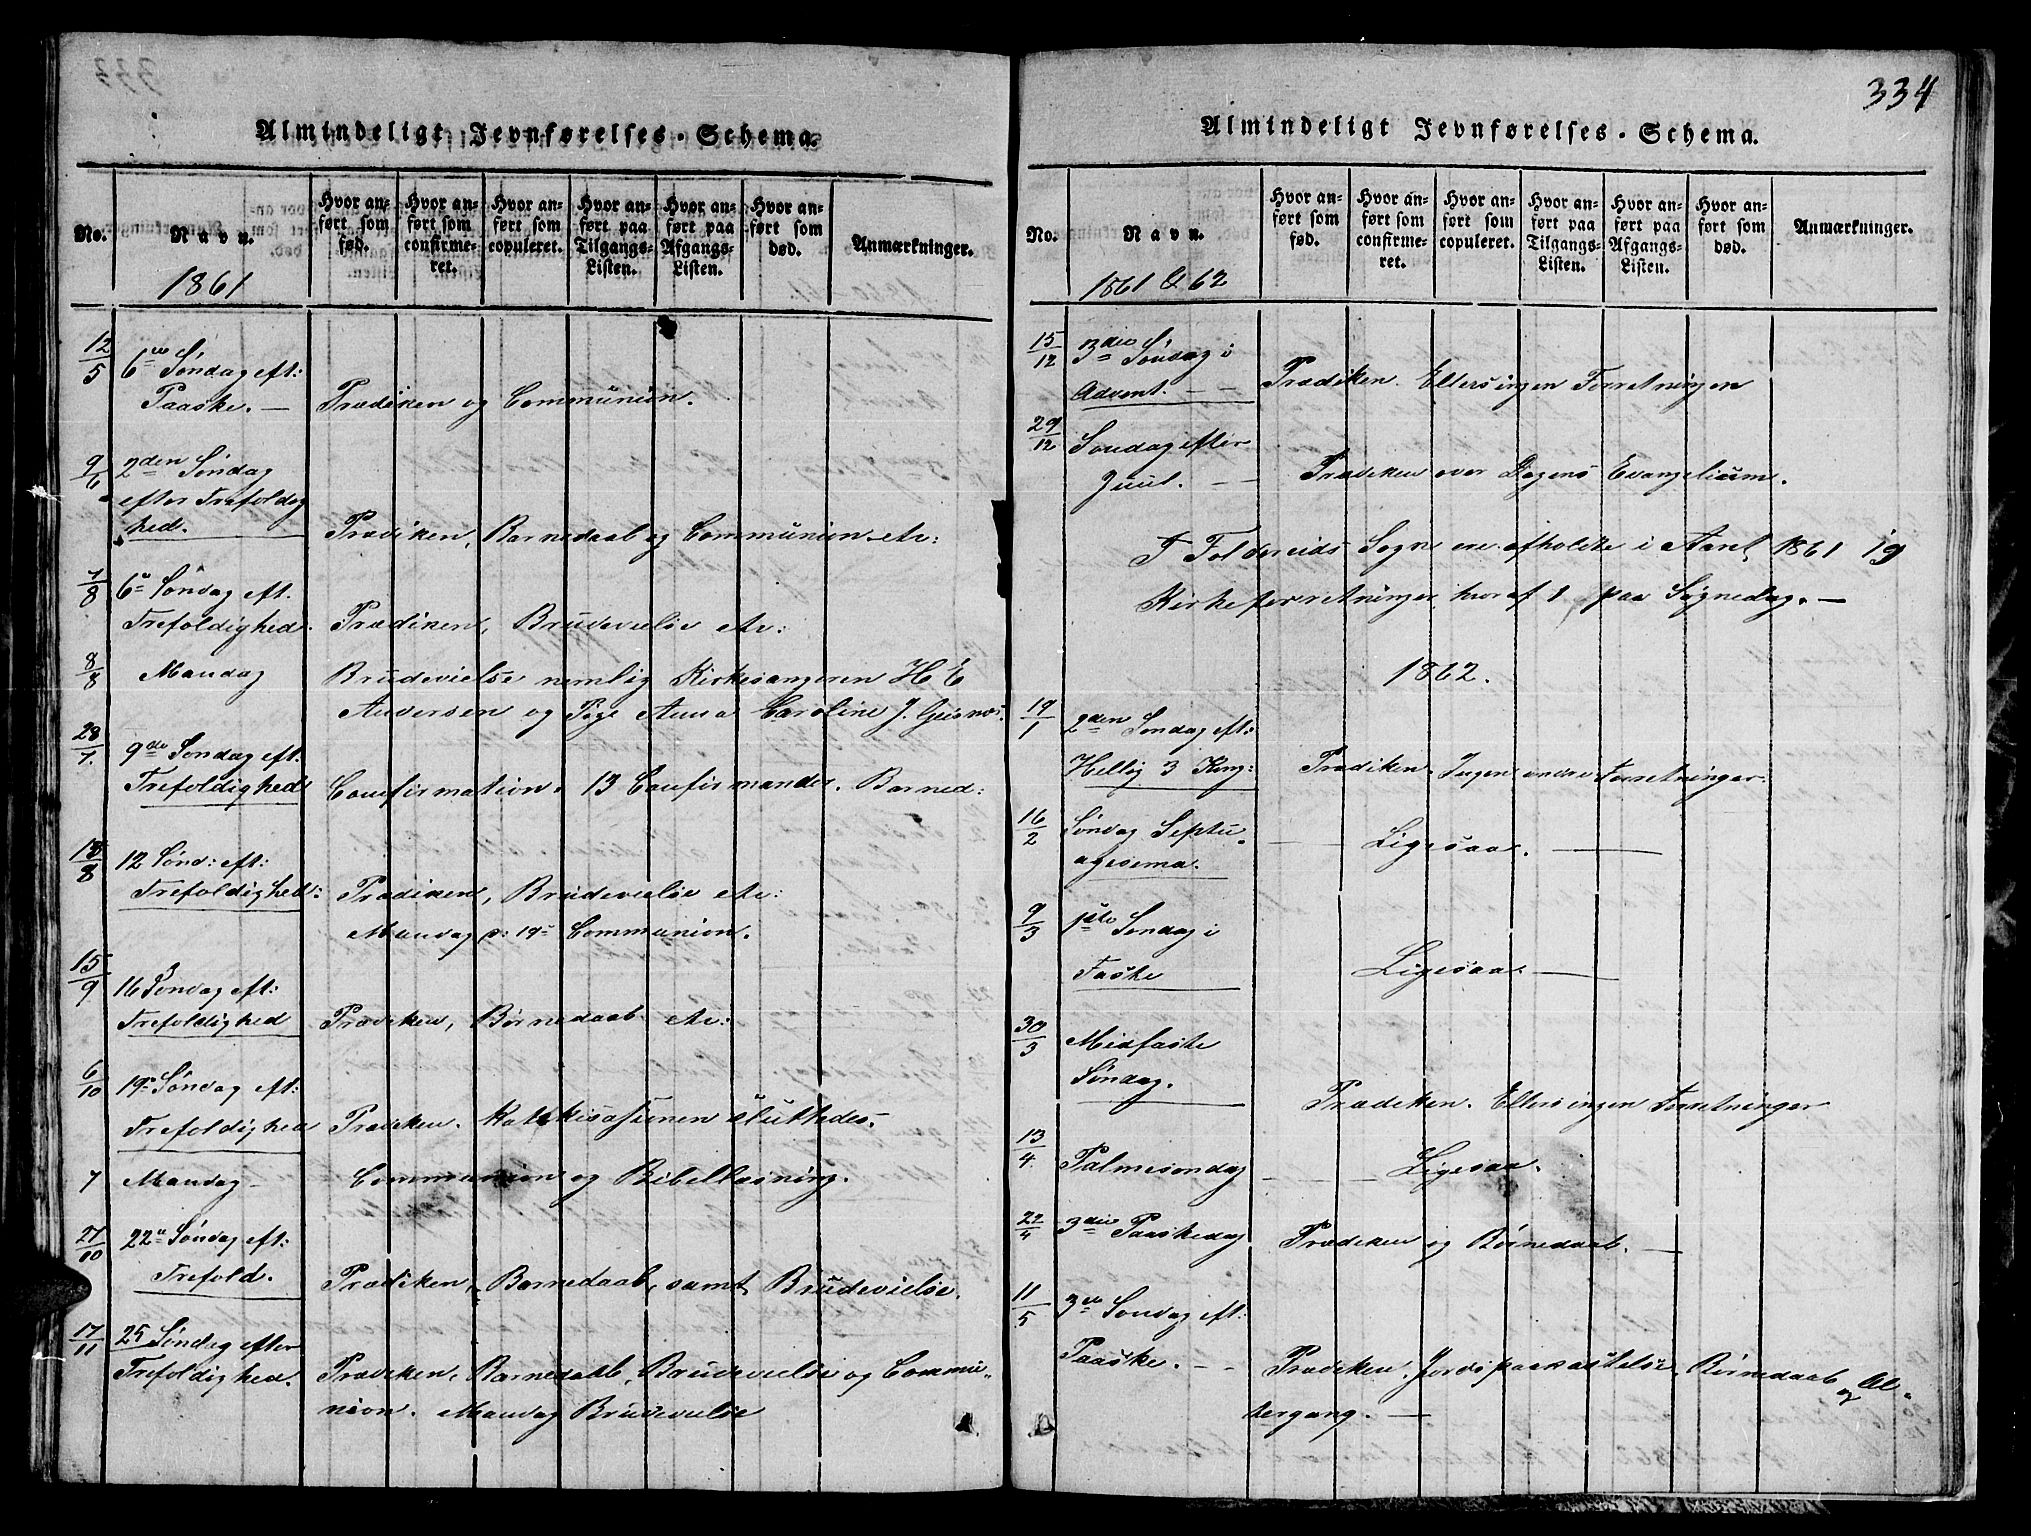 Almindeligt Jevnførelses-Schema.
No.
Navn.
Hvor anført som fød.
Hvor anført som confirmeret.
Hvor anført som copuleret.
Hvor anført paa Tilgangs-Listen.
Hvor anført paa Afgangs-Listen.
Hvor anført som død.
Anmærkninger.
1861
12/5 6te Søndag eft:
Paaske. — Prædiken og Communion.
9/6 2den Søndag
efter Trefoldig
hed. Prædiken, Barnedaab og Communion etc:
7/8 6te Søndag eft.
Trefoldighed. Prædiken, Brudevielse etc:
8/8 Mandag Brudevielse nemlig Kirkesangeren H E
Andersen og Pige Anna Caroline J. Geisnæs.
28/7. 9de Søndag eft:
Trefoldighed Confirmation. 13 Confirmander. Barned:
18/8 12 Sønd: eft:
Trefoldighed: Prædiken, Brudevielse etc:
Mandag d: 19de Communion.
15/9 16 Søndag eft:
Trefoldighed Prædiken, Børnedaab etc:
6/10 19de Søndag eft:
Trefoldighed Prædiken. Katekisasjonen sluttedes.
7 Mandag Communion og Bibellæsning.
27/10 22de Søndag eft:
Trefold. Prædiken, Barnedaab, samt Brudevielse.
17/11 25 Søndag efter
Trefoldighed. Prædiken, Barnedaab, Brudevielse og Commu-
nion. Mandag Brudevielse
334
Almindeligt Jevnførelses-Schema.
No.
Navn.
Hvor anført som fød.
Hvor anført som confirmeret.
Hvor anført som copuleret.
Hvor anført paa Tilgangs-Listen.
Hvor anført paa Afgangs-Listen.
Hvor anført som død.
Anmærkninger.
1861 & 62
15/12 3die Søndag i
Advent. — — Prædiken. Ellers ingen Forretningen
29/12 Søndag efter
Juul. — — Prædiken over Dagens Evangelium.
I Foldereids Sogn ere afholdte i Aaret 1861 19
Kirkeforretninger, hvoraf 1 paa Søgnedag. —
1862.
19/1 2den Søndag eft:
Hellig 3 Kong: Prædiken. Ingen andre Forretninger.
16/2 Søndag Septu-
agesema. — Ligesaa. —
9/3 1ste Søndag i
Faste Ligesaa. —
30/3 Midfaste
Søndag. Prædiken. Ellers ingen Forretninger
13/4. Palmesøndag — — Ligesaa.
22/4 3die Paaskedag Prædiken og Børnedaab. —
11/5 3die Søndag eft:
Paaske. — — Prædiken, Jordspaakastelse, Børnedaab og Al-
tergang. —